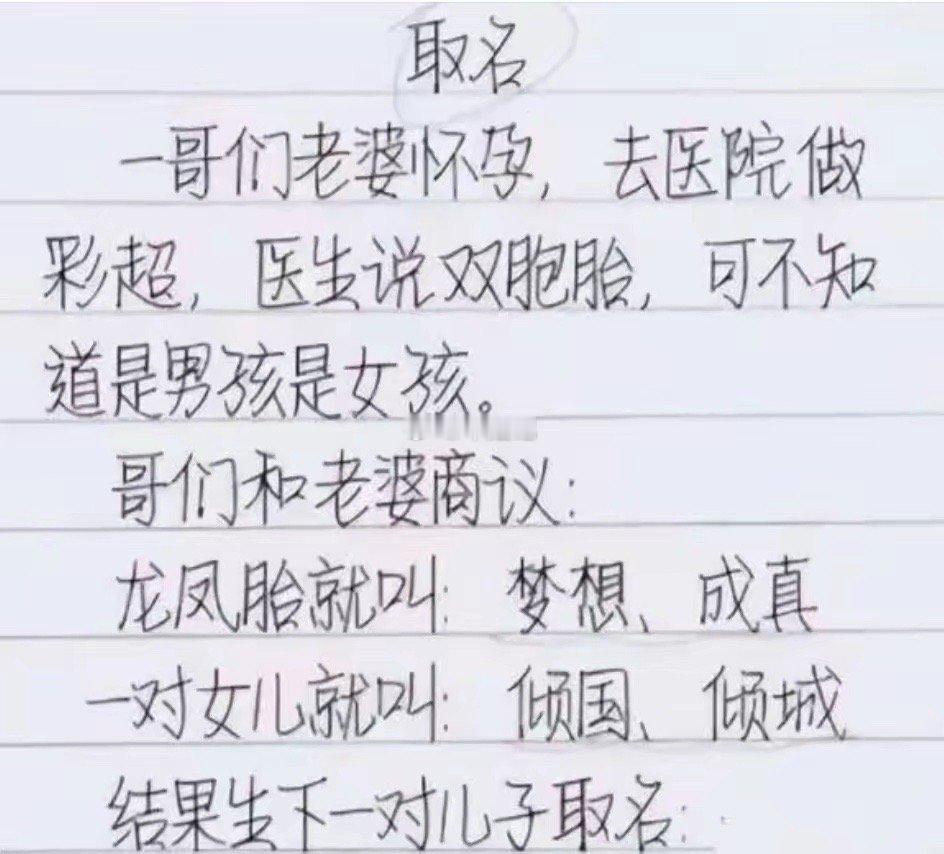 取名
一哥们老婆怀孕，去医院做
彩超，医生说双胞胎，可不知
道是男孩是女孩。
哥们和老婆商议：
龙凤胎就叫：梦想、成真
一对女儿就叫：倾国、倾城
结果生下一对儿子取名：